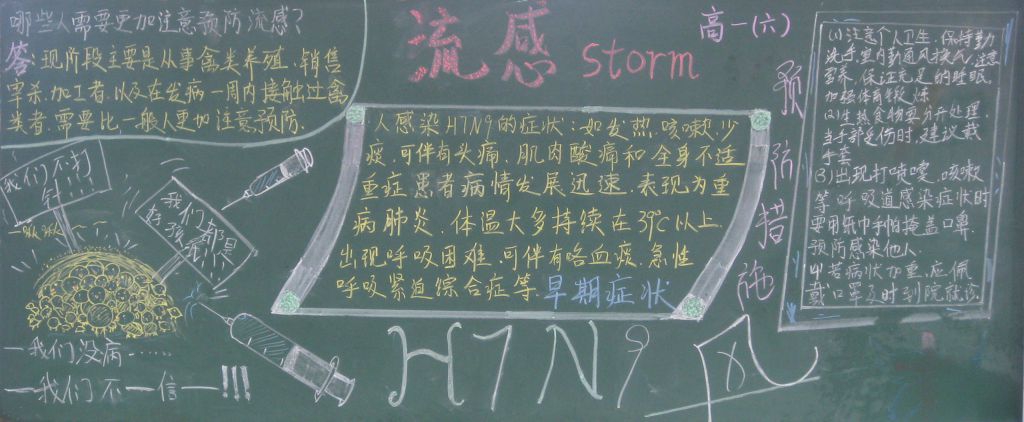 哪些人需要更加注意预防流感？
答：现阶段主要是从事禽类养殖、销售
宰杀、加工者、以及在发病一周内接触过禽
类者，需要比一般人更加注意预防。
流感 storm
高一（六）
人感染H7N9的症状：如发热，咳嗽，少
痰，可伴有头痛，肌肉酸痛和全身不适
重症患者病情发展迅速，表现为重
病肺炎，体温大多持续在39℃以上，
出现呼吸困难，可伴有咯血痰，急性
呼吸紧迫综合症等。早期症状
预防措施
(1)注意个人卫生，保持勤
洗手，室内勤通风换气，注意
营养，保证充足的睡眠
加强体育锻炼
(2)生熟食物要分开处理，
当手部受伤时，建议戴
手套
(3)出现打喷嚏、咳嗽
等呼吸道感染症状时
要用纸巾手帕掩盖口鼻
预防感染他人
(4)若病状加重，应佩
戴口罩及时到院就诊。
我们不打
针！！！
我们都是
一我们没病……
一我们不一信一！！！
H7N9 风